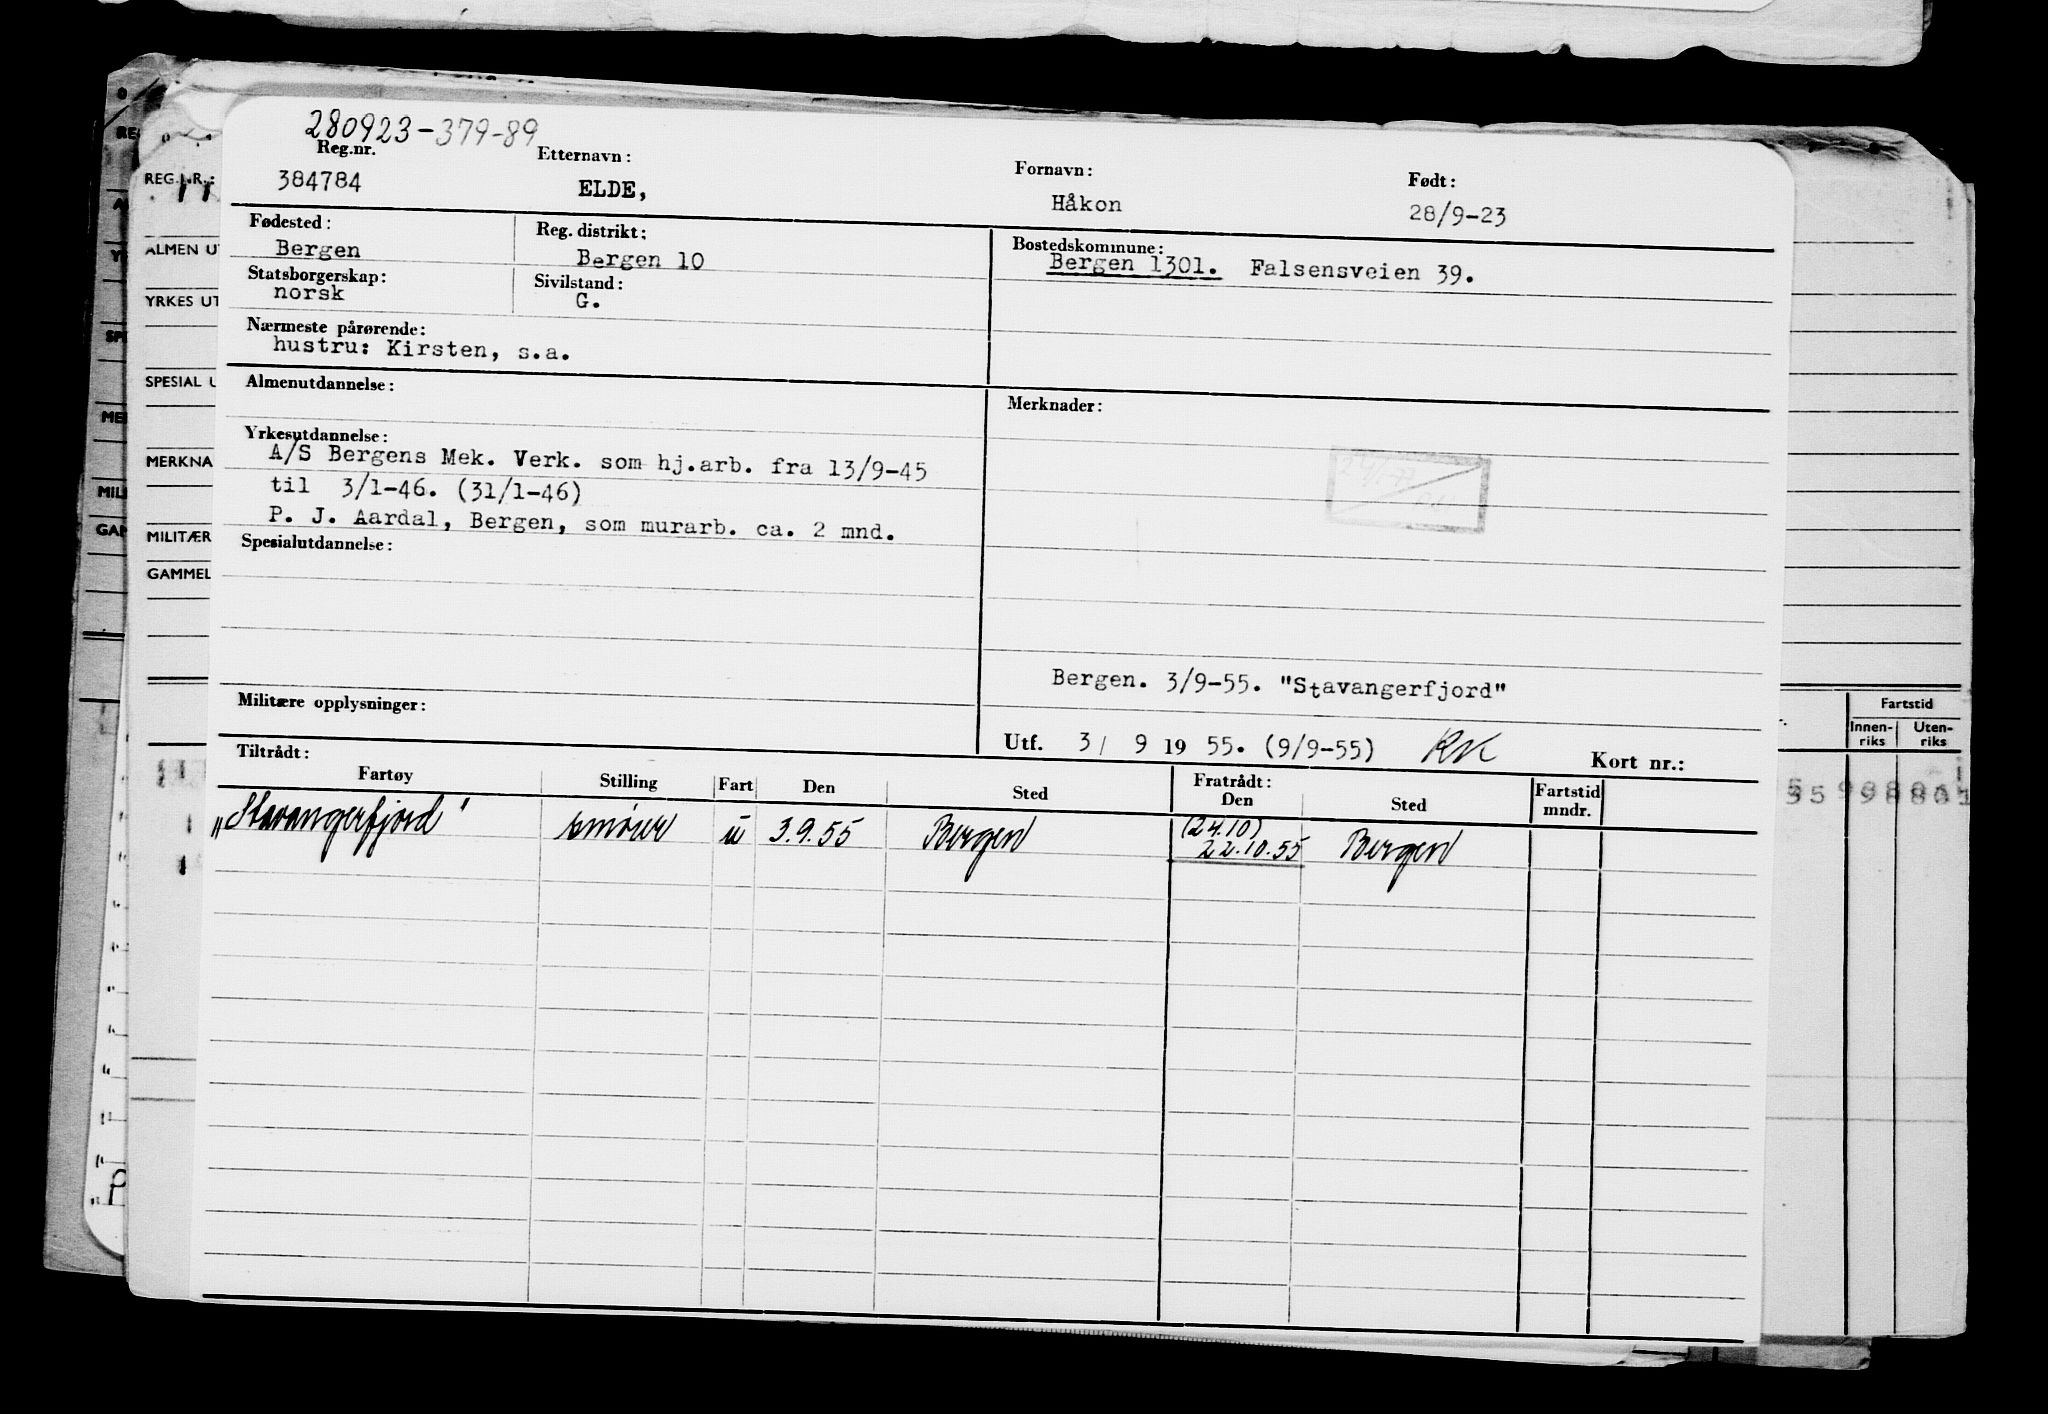 280923-379-89
Reg.nr. Etternavn: Fornavn: Født:
384784 ELDE, Håkon 28/9-23
Fødested: Reg. distrikt: Bostedskommune:
Bergen Bergen 10 Bergen 1301. Falsensveien 39.
Statsborgerskap: Sivilstand:
norsk G.
Nærmeste pårørende:
hustru: Kirsten, s.a.
Almenutdannelse: Merknader:
Yrkesutdannelse:
A/S Bergens Mek. Verk. som hj.arb. fra 13/9-45
til 3/1-46. (31/1-46)
P. J. Aardal, Bergen, som murarb. ca. 2 mnd.
Spesialutdannelse:
Bergen. 3/9-55. "Stavangerfjord"
Militære opplysninger:
Utf. 3/ 9 19 55. (9/9-55) RK Kort nr.:
Tiltrådt: Fratrådt:
Fartøy Stilling Fart Den Sted Den Sted Fartstid mndr.
(24.10)
„Stavangerfjord" smører u 3.9.55 Bergen 22.10.55 Bergen
REG.NR.:
ALMEN UT
YRKES UT
SPESIAL U
MERKNA
MILITÆR
GAMMEL
Fartstid
Innen-riks Uten-riks